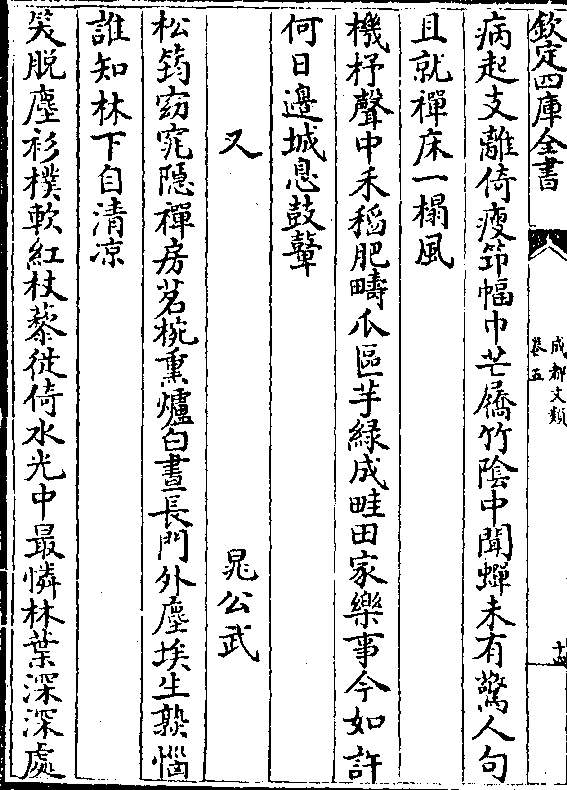 欽定四庫全書
成都文類
卷五
十四
病起支離倚瘦笻幅巾芒屩竹陰中聞蟬未有驚人句
且就禪床一榻風
機杼聲中禾稻肥疇瓜區芋緑成畦田家樂事今如許
何日邊城息鼓鼙
又
晁公武
松筠窈窕隠禪房茗椀熏爐白晝長門外塵埃生熱惱
誰知林下自清凉
笑脱塵衫樸軟紅杖藜徙倚水光中最憐林葉深深處